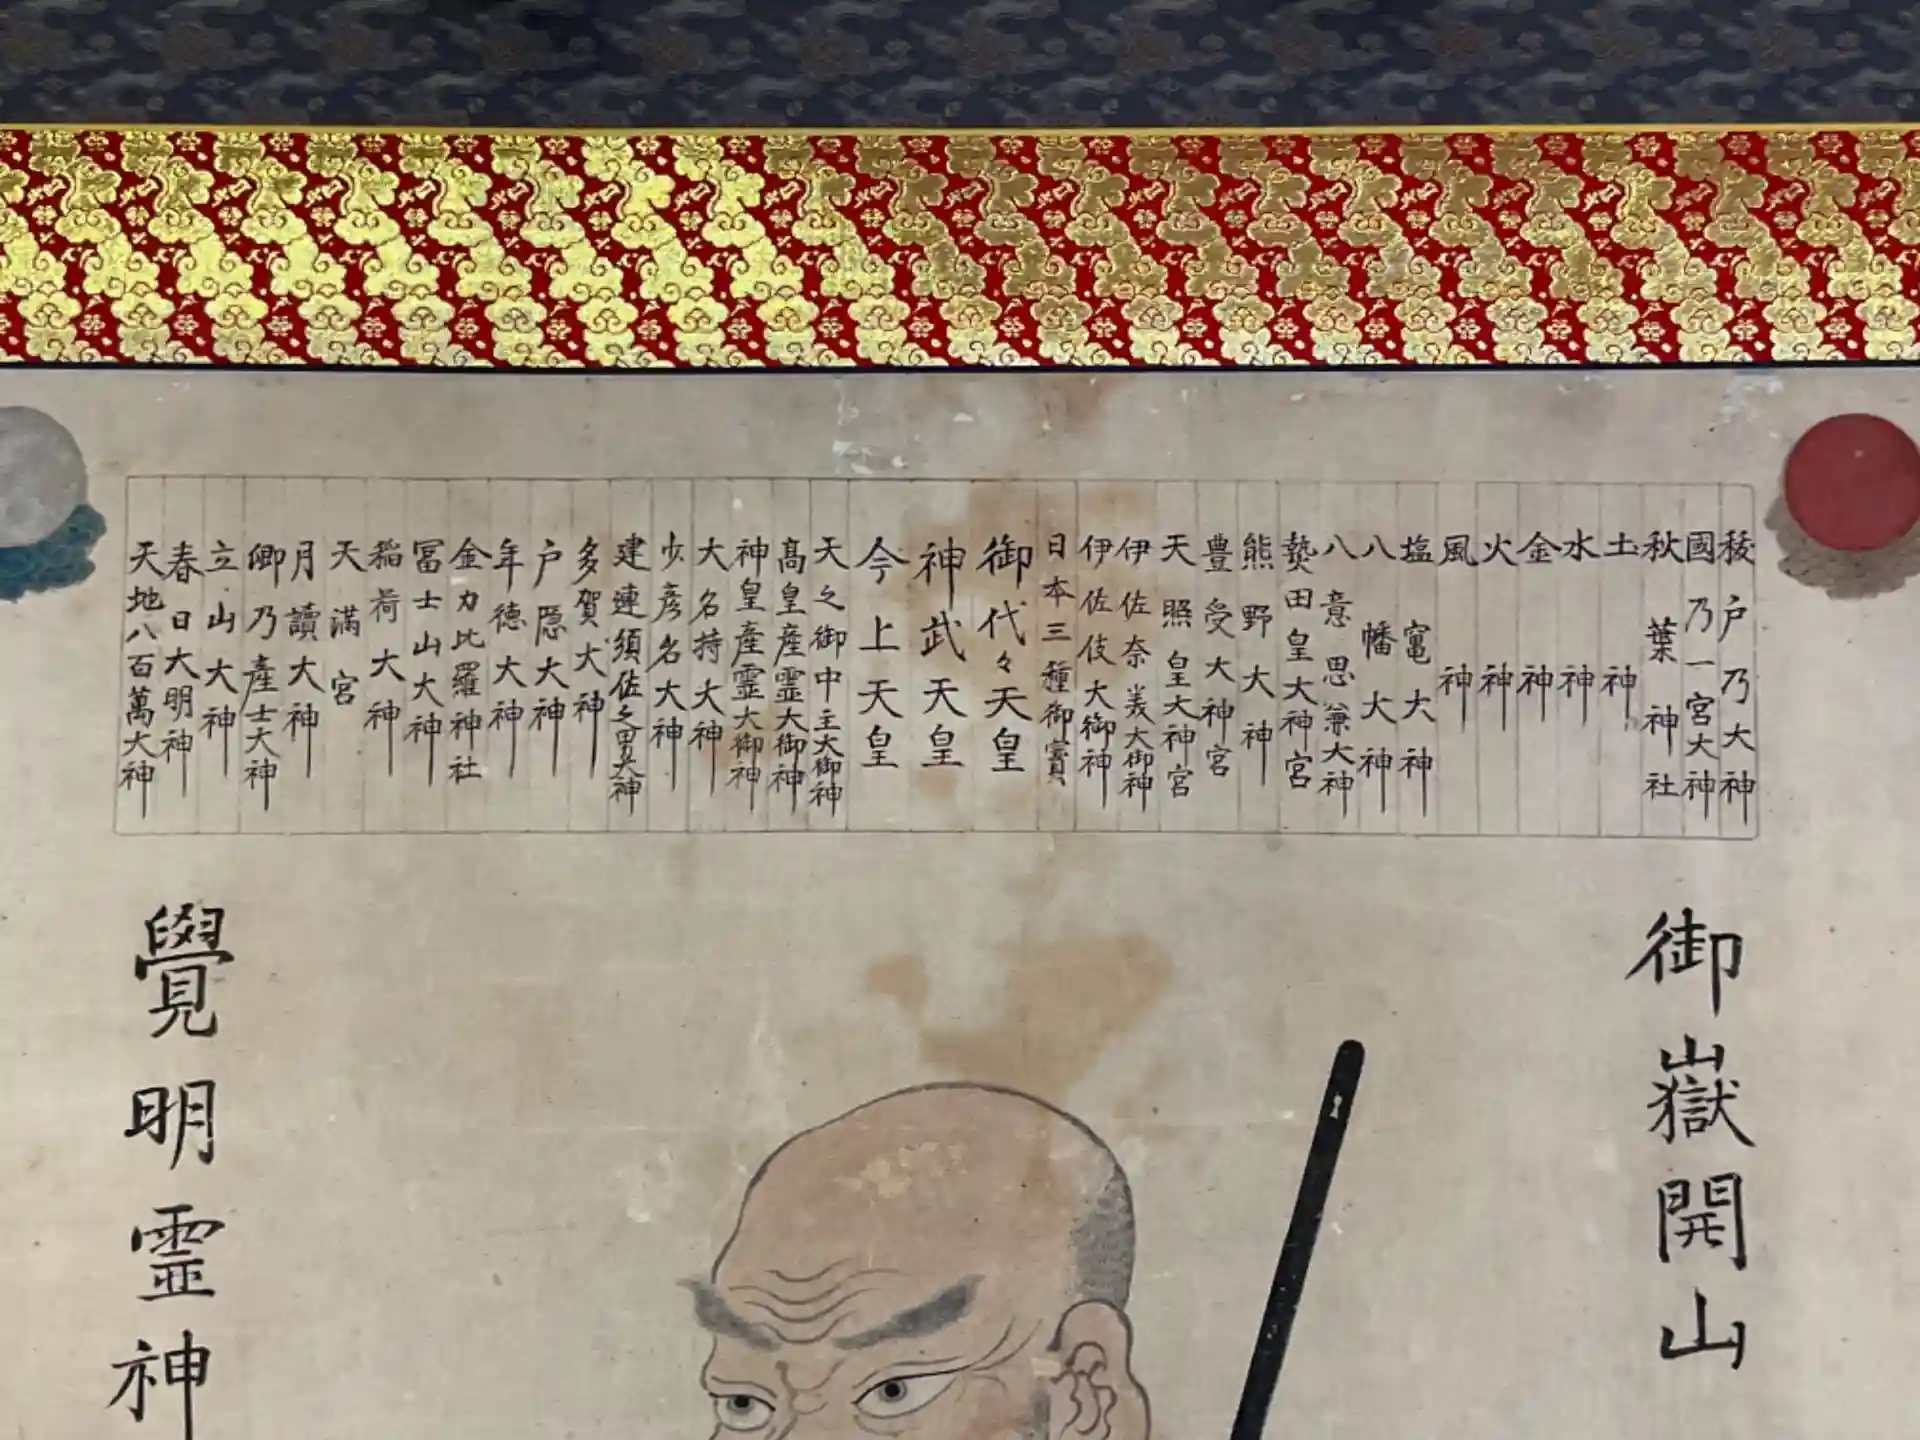 祓戸乃大神
國乃一宮大神
秋葉神社
土神
水神
金神
火神
風神
塩竃大神
八幡大神
八意思兼大神
熱田皇大神宮
熊野大神
豊受大神宮
天照皇大神宮
伊佐奈美大御神
伊佐伎大御神
日本三種御寳
御代々天皇
神武天皇
今上天皇
天之御中主大御神
高皇産霊大御神
神皇産霊大御神
大名持大神
少彦名大神
建速須佐之男大神
多賀大神
戸隠大神
年徳大神
金力比羅神社
冨士山大神
稲荷大神
天満宮
月讀大神
郷乃産士大神
立山大神
春日大明神
天地八百萬大神
御嶽開山
覺明霊神